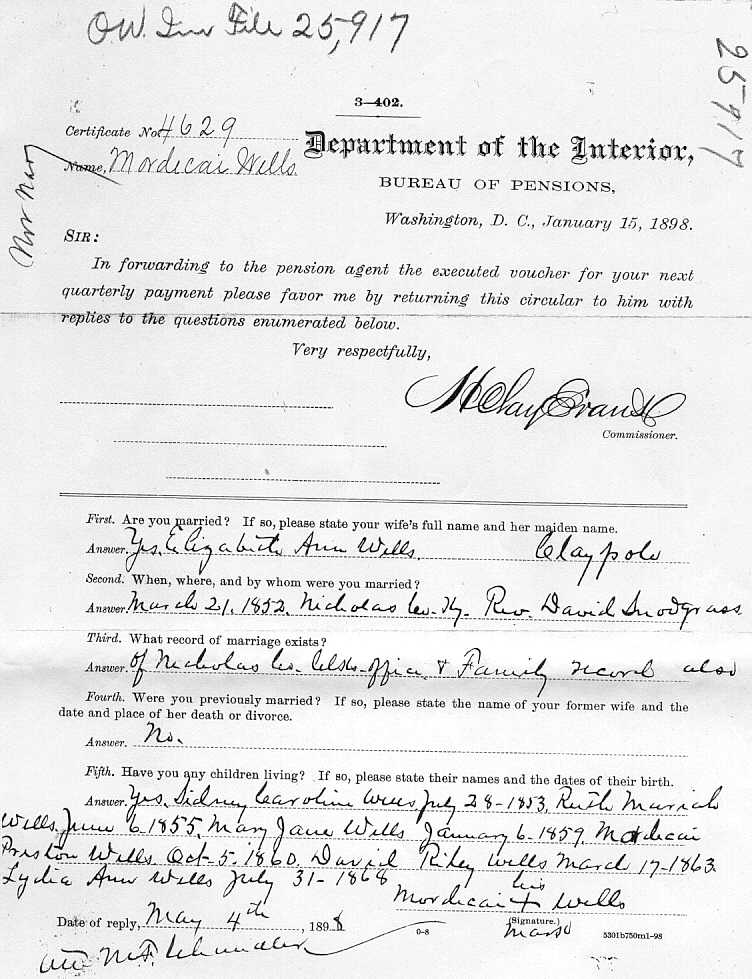 O.W. Inv File 25,917
25917
3-402.
Certificate No. 4629
Department of the Interior,
Name, Mordecai Wells.
BUREAU OF PENSIONS,
Washington, D. C., January 15, 1898.
SIR:
In forwarding to the pension agent the executed voucher for your next
quarterly payment please favor me by returning this circular to him with
replies to the questions enumerated below.
Very respectfully,
H Clay Evans
Commissioner.
First. Are you married? If so, please state your wife's full name and her maiden name.
Answer. Yes. Elizabeth Ann Wells. Claypole
Second. When, where, and by whom were you married?
Answer. March 21, 1852, Nicholas Co. Ky. Rev. David Snodgrass
Third. What record of marriage exists?
Answer. of Nicholas Co. Clks. office & Family record also
Fourth. Were you previously married? If so, please state the name of your former wife and the
date and place of her death or divorce.
Answer. No.
Fifth. Have you any children living? If so, please state their names and the dates of their birth.
Answer. Yes, Sidney Caroline Wells July 28-1853, Ruth Mariah
Wells, June 6-1855, Mary Jane Wells January 6-1859, Mordecai
Preston Wells Oct-5-1860, David Riley Wells March 17-1863
Lydia Ann Wells July 31-1868
his
Mordecai + Wells
(Signature.)
mark
Date of reply, May 4th, 1898
0-8
5301b750m1-98